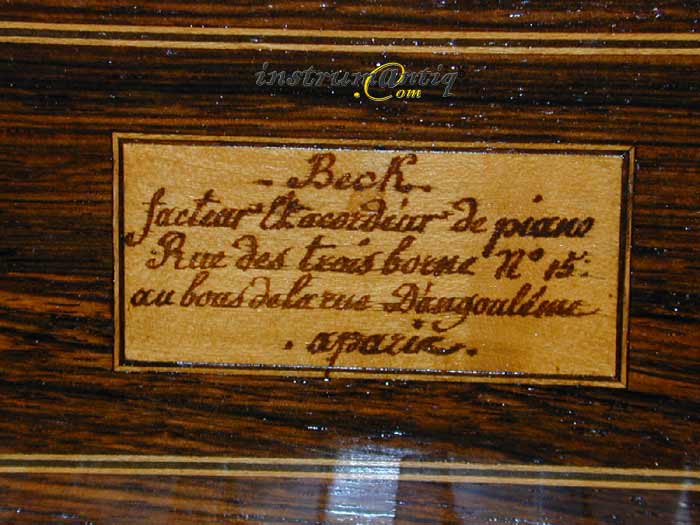 instrumantiq
.Com
- Beck.
facteur et acordeur de piano
Rue des trois borne N° 15.
au bous de la rue D'angoulême
. a paris .